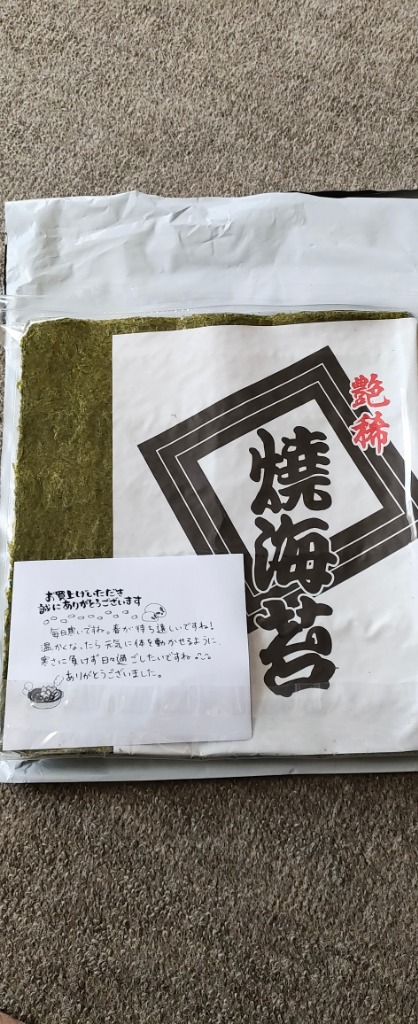 艶稀
焼海苔
お買上げいただき
誠にありがとうございます
毎日寒いですね。春が待ち遠しいですね!
温かくなったら元気に体を動かせるように、
寒さに負けず日々過ごしたいですね
ありがとうございました。